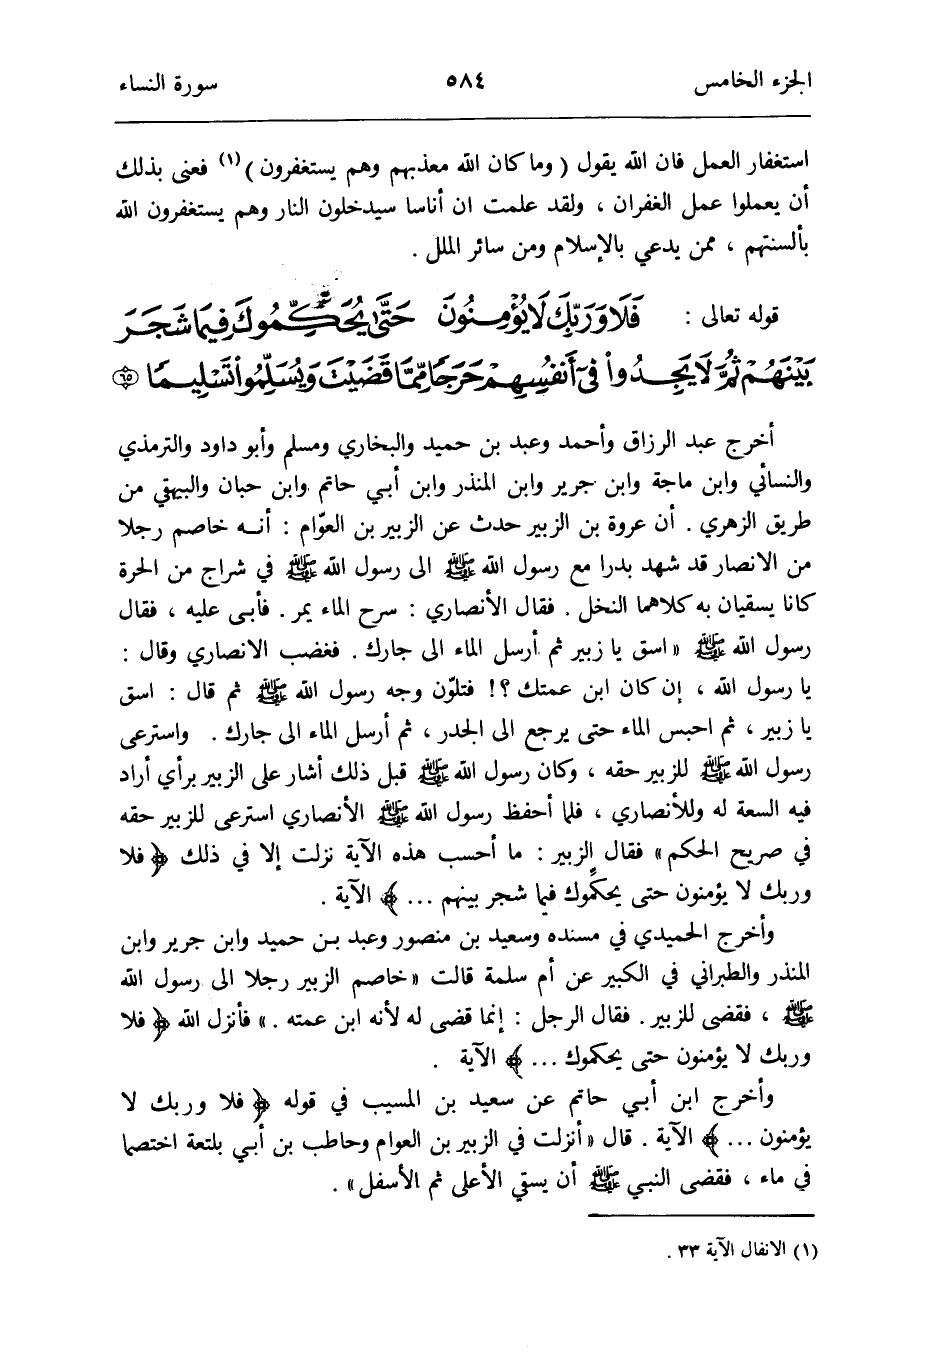 الجزء الخامس ٥٨٤ سورة النساء
استغفار العمل فان الله يقول ( وما كان الله معذبهم وهم يستغفرون ) (١) فعنى بذلك
أن يعملوا عمل الغفران ، ولقد علمت ان أناسا سيدخلون النار وهم يستغفرون الله
بألسنتهم ، ممن يدعي بالإسلام ومن سائر الملل .
قوله تعالى : فَلَا وَرَبِّكَ لَا يُؤْمِنُونَ حَتَّىٰ يُحَكِّمُوكَ فِيمَا شَجَرَ
بَيْنَهُمْ ثُمَّ لَا يَجِدُوا۟ فِىٓ أَنفُسِهِمْ حَرَجًا مِّمَّا قَضَيْتَ وَيُسَلِّمُوا۟ تَسْلِيمًا ٦٥
أخرج عبد الرزاق وأحمد وعبد بن حميد والبخاري ومسلم وأبو داود والترمذي
والنسائي وابن ماجة وابن جرير وابن المنذر وابن أبي حاتم وابن حبان والبيهقي من
طريق الزهري . أن عروة بن الزبير حدث عن الزبير بن العوّام : أنه خاصم رجلا
من الانصار قد شهد بدرا مع رسول الله ﷺ الى رسول الله ﷺ في شراج من الحرة
كانا يسقيان به كلاهما النخل . فقال الأنصاري : سرح الماء يمر . فأبى عليه ، فقال
رسول الله ﷺ « اسق يا زبير ثم أرسل الماء الى جارك . فغضب الانصاري وقال :
يا رسول الله ، إن كان ابن عمتك ؟! فتلوّن وجه رسول الله ﷺ ثم قال : اسق
يا زبير ، ثم احبس الماء حتى يرجع الى الجدر ، ثم أرسل الماء الى جارك . واسترعى
رسول الله ﷺ للزبير حقه ، وكان رسول الله ﷺ قبل ذلك أشار على الزبير برأي أراد
فيه السعة له وللأنصاري ، فلما أحفظ رسول الله ﷺ الأنصاري استرعى للزبير حقه
في صريح الحكم » فقال الزبير : ما أحسب هذه الآية نزلت إلا في ذلك ﴿ فلا
وربك لا يؤمنون حتى يحكّموك فيما شجر بينهم ... ﴾ الآية .
وأخرج الحميدي في مسنده وسعيد بن منصور وعبد بن حميد وابن جرير وابن
المنذر والطبراني في الكبير عن أم سلمة قالت « خاصم الزبير رجلا الى رسول الله
ﷺ ، فقضى للزبير . فقال الرجل : إنما قضى له لأنه ابن عمته . » فأنزل الله ﴿ فلا
وربك لا يؤمنون حتى يحكموك ... ﴾ الآية .
وأخرج ابن أبي حاتم عن سعيد بن المسيب في قوله ﴿ فلا وربك لا
يؤمنون ... ﴾ الآية . قال « أنزلت في الزبير بن العوام وحاطب بن أبي بلتعة اختصما
في ماء ، فقضى النبي ﷺ أن يسقي الأعلى ثم الأسفل » .
(١) الانفال الآية ٣٣ .